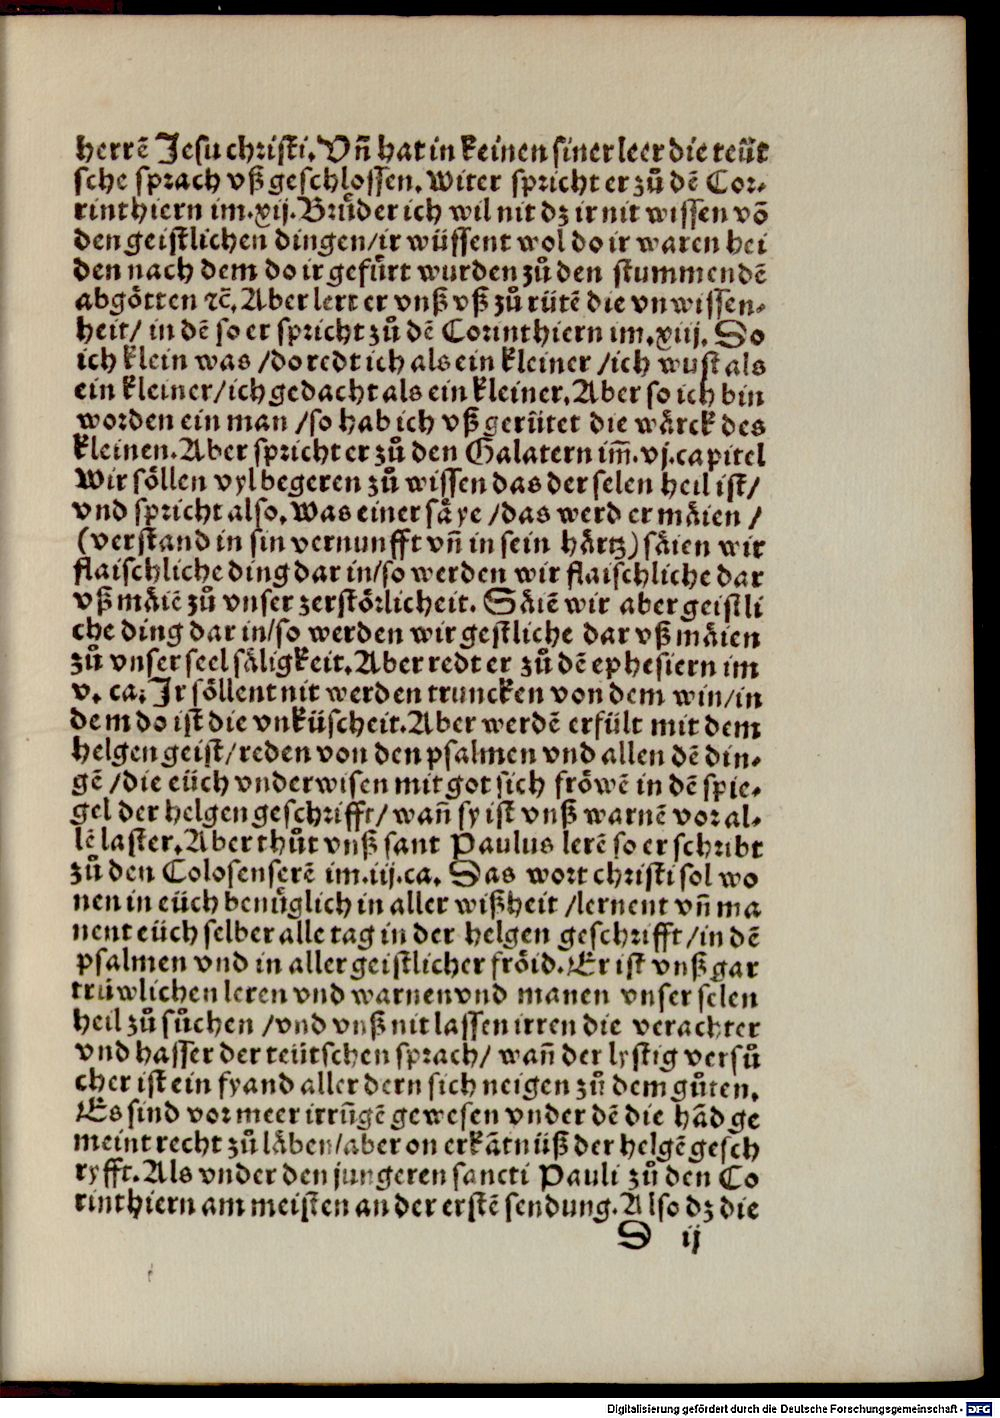 herrē Jesu christi. Vñ hat in keinen siner leer die teüt
sche sprach vß geschlossen. Witer spricht er zů dē Cor-
rinthiern im .xij. Brůder ich wil nit dz ir nit wissen vō
den geistlichen dingen/ir wüssent wol do ir waren hei
den nach dem do ir gefürt wurden zů den stummendē
abgötten ⁊c̄. Aber lert er vnß vß zů rütē die vnwissen-
heit/ in dē so er spricht zů dē Corinthiern im .xiij. So
ich klein was /do redt ich als ein kleiner /ich wust als
ein kleiner/ich gedacht als ein kleiner. Aber so ich bin
worden ein man /so hab ich vß gerütet die wärck des
kleinen. Aber spricht er zů den Galatern im̄ .vj. capitel
Wir söllen vyl begeren zů wissen das der selen heil ist/
vnd spricht also. Was einer säye /das werd er mäien /
(verstand in sin vernunfft vñ in sein härtz) säien wir
flaischliche ding dar in/so werden wir flaischliche dar
vß mäiē zů vnser zerstörlicheit. Säiē wir aber geistli
che ding dar in/so werden wir gestliche dar vß mäien
zů vnser seel säligkeit. Aber redt er zů dē ephesiern im
v. ca. Jr söllent nit werden truncken von dem win/in
dem do ist die vnküscheit. Aber werdē erfült mit dem
helgen geist/reden von den psalmen vnd allen dē din-
gē /die eüch vnderwisen mit got sich fröwē in dē spie-
gel der helgen geschrifft/ wañ sy ist vnß warnē vor al-
lē laster. Aber thůt vnß sant Paulus lerē so er schribt
zů den Colosenserē im .iij. ca. Das wort christi sol wo
nen in eüch benüglich in aller wißheit /lernent vñ ma
nent eüch selber alle tag in der helgen geschrifft/in dē
psalmen vnd in aller geistlicher fröid. Er ist vnß gar
trüwlichen leren vnd warnen vnd manen vnser selen
heil zů sůchen /vnd vnß nit lassen irren die verachter
vnd hasser der teütschen sprach/ wañ der lystig versů
cher ist ein fyand aller dern sich neigen zů dem gůten.
Es sind vor meer irrūgē gewesen vnder dē die hād ge
meint recht zů läben/aber on erkātnüß der helgē gesch
ryfft. Als vnder den jungeren sancti Pauli zů den Co
rinthiern am meisten an der erstē sendung. Also dz die
S ij
Digitalisierung gefördert durch die Deutsche Forschungsgemeinschaft - DFG